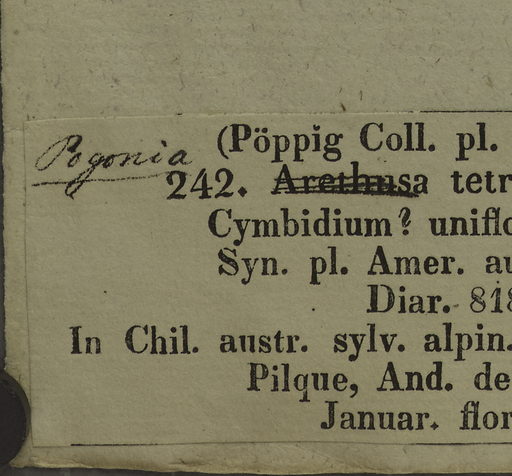 (Pöppig Coll. pl.
Pogonia
242. Arethusa tetr
Cymbidium? uniflo
Syn. pl. Amer. au
Diar. 818
In Chil. austr. sylv. alpin.
Pilque, And. de
Januar. flor